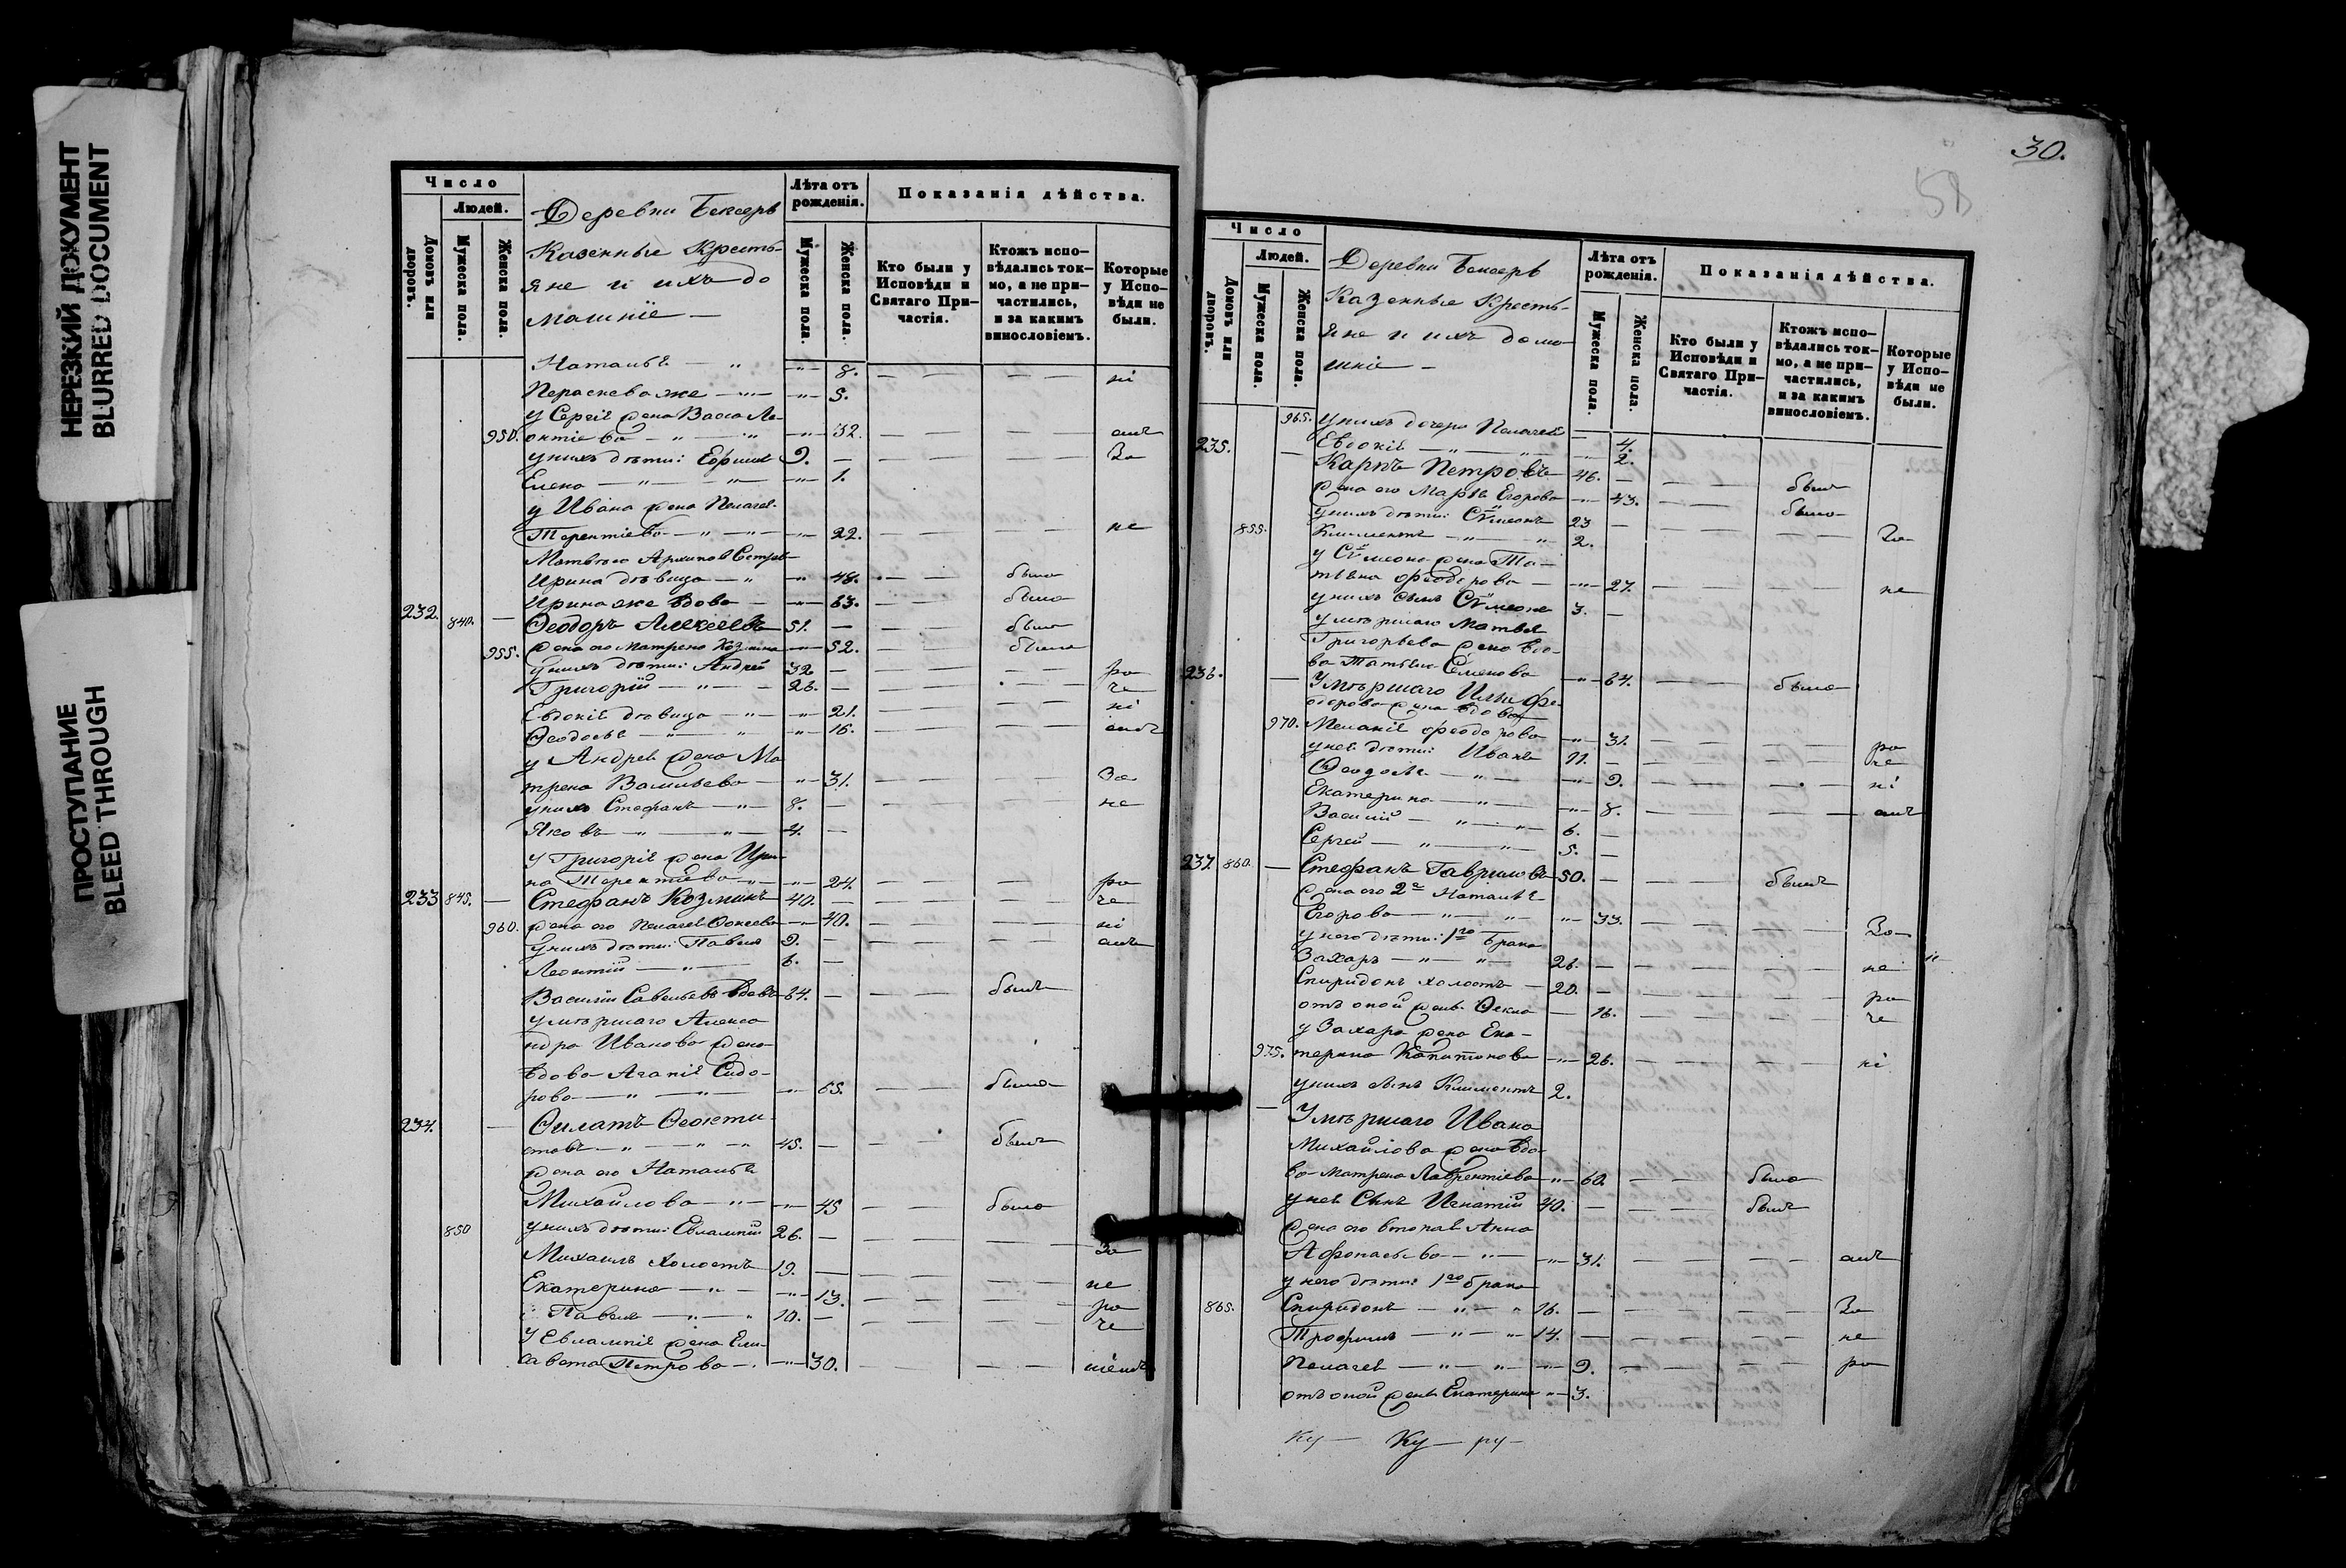 НЕРЕЗКИЙ ДОКУМЕНТ
BLURRED DOCUMENT
ПРОСТУПАНИЕ
BLEED THROUGH
Число
Людей.
Домовъ или дворовъ.
Мужеска пола.
Женска пола.
Деревни Бексеръ
Казенные Кресть-
яне и ихъ до
машніе —
Лѣта отъ рожденія.
Мужеска пола.
Женска пола.
Показанія дѣйства.
Кто были у Исповѣди и Святаго При-частія.
Ктожъ испо-вѣдались ток-мо, а не при-частились, и за какимъ винословіемъ.
Которые у Испо-вѣди не были.
Наталья — " — 8. — ні
Параскева же — " — 5.
у Сергія жена Васса Ле-
950. онтіева — " — 32. — емъ
у нихъ дѣти: Ефимъ 9. — За
Елена — " — 1.
у Ивана жена Пелагея
Терентіева — " — 22. — не
Матвѣя Архипов Сестра
Ирина дѣвица — " — 48. — была
Ирина же вдова — 63. — была
232. 840. — Ѳеодоръ Алексѣевъ 51. — былъ
955. жена его Матрена Козмина — 52. — была
у нихъ дѣти: Андрей 32 — ра
Григорій — " — 26. — че
Евдокія дѣвица — " — 21. — ні
Ѳеодосья — " — 16. — емъ
у Андрея жена Ма
трена Васильева — " — 31. — За
у нихъ Стефанъ — " — 8. — не
Яковъ — " — 4. —
у Григорія жена Ири-
на Терентіева — " — 24. — ра
233 845. — Стефанъ Козминъ 40. — че
960. жена его Пелагея — 40. — ні
у нихъ дѣти: Павелъ 9. — емъ
Леонтій — " — 6. —
Василій Савельевъ вдовъ 64. — былъ
умѣршаго Алекса
ндра Иванова жена
вдова Агапія Сидо-
рова — " — 65. — была
234. — Филатъ Ѳеокти
стовъ — " — 45. — былъ
жена его Наталья
Михайлова — " — 45 — была
850 у нихъ дѣти: Евлампій 26. — За
Михаилъ холостъ 19. —
Екатерина — " — 13. — не
Павелъ — " — 10. — ра че
У Евлампія жена Ели-
завета Петрова — " — 30. — ніемъ
30.
58
Число
Людей.
Домовъ или дворовъ.
Мужеска пола.
Женска пола.
Деревни Бексеръ
Казенные Кресть-
яне и ихъ дома-
шніе —
Лѣта отъ рожденія.
Мужеска пола.
Женска пола.
Показанія дѣйства.
Кто были у Исповѣди и Святаго При-частія.
Ктожъ испо-вѣдались ток-мо, а не при-частились, и за какимъ винословіемъ.
Которые у Испо-вѣди не были.
965. у нихъ дочери Пелагея — 4.
Евдокія — " — 2.
235. — Карпъ Петровъ 46. — былъ
жена его Марья Егорова — 43. — была
у нихъ дѣти: Сѵмеонъ 23 —
855. Климентъ — " — 2. — За
у Сѵмеона жена Та-
тіана Ѳеодорова — " — 27. — не
у нихъ сынъ Сѵмеонъ 3. —
умѣршаго Матвѣя
Григорьева жена вдо-
ва Татьяна Семенова — " — 64. — была
236. — Умѣршаго Ильи Фе-
одорова жена вдова
970. Меланія Ѳеодорова — " — 31. — ра
у нея дѣти: Иванъ 11. — че
Ѳеодосья — " — 9. — ні
Екатерина — " — 8. — емъ
Василій — " — 6. —
Сергей — " — 5. —
237. 860. — Стефанъ Гавриловъ 50. — былъ
жена его 2я Наталья
Егорова — " — 33. — За
у него дѣти: 1го брака
Захаръ — " — 26. — не
Спиридонъ холостъ — 20. — ра
отъ оной жены Фекла — 16. — че
у Захара жена Ека-
975. терина Капитонова — " — 26. — ні
у нихъ сынъ Климентъ 2.
— Умѣршаго Ивана
Михайлова жена вдо-
ва Матрена Лаврентіева — " — 60. — была
у нея Сынъ Игнатій 40. — былъ
жена его вторая Анна
Афонасьева — " — 31. — емъ
у него дѣти: 1го брака
865. Спиридонъ — " — 16. — За
Трофимъ — " — 14. — не
Пелагея — " — 9. — ра
отъ оной жены Екатерина " — 3.
ку — Ку — ру —